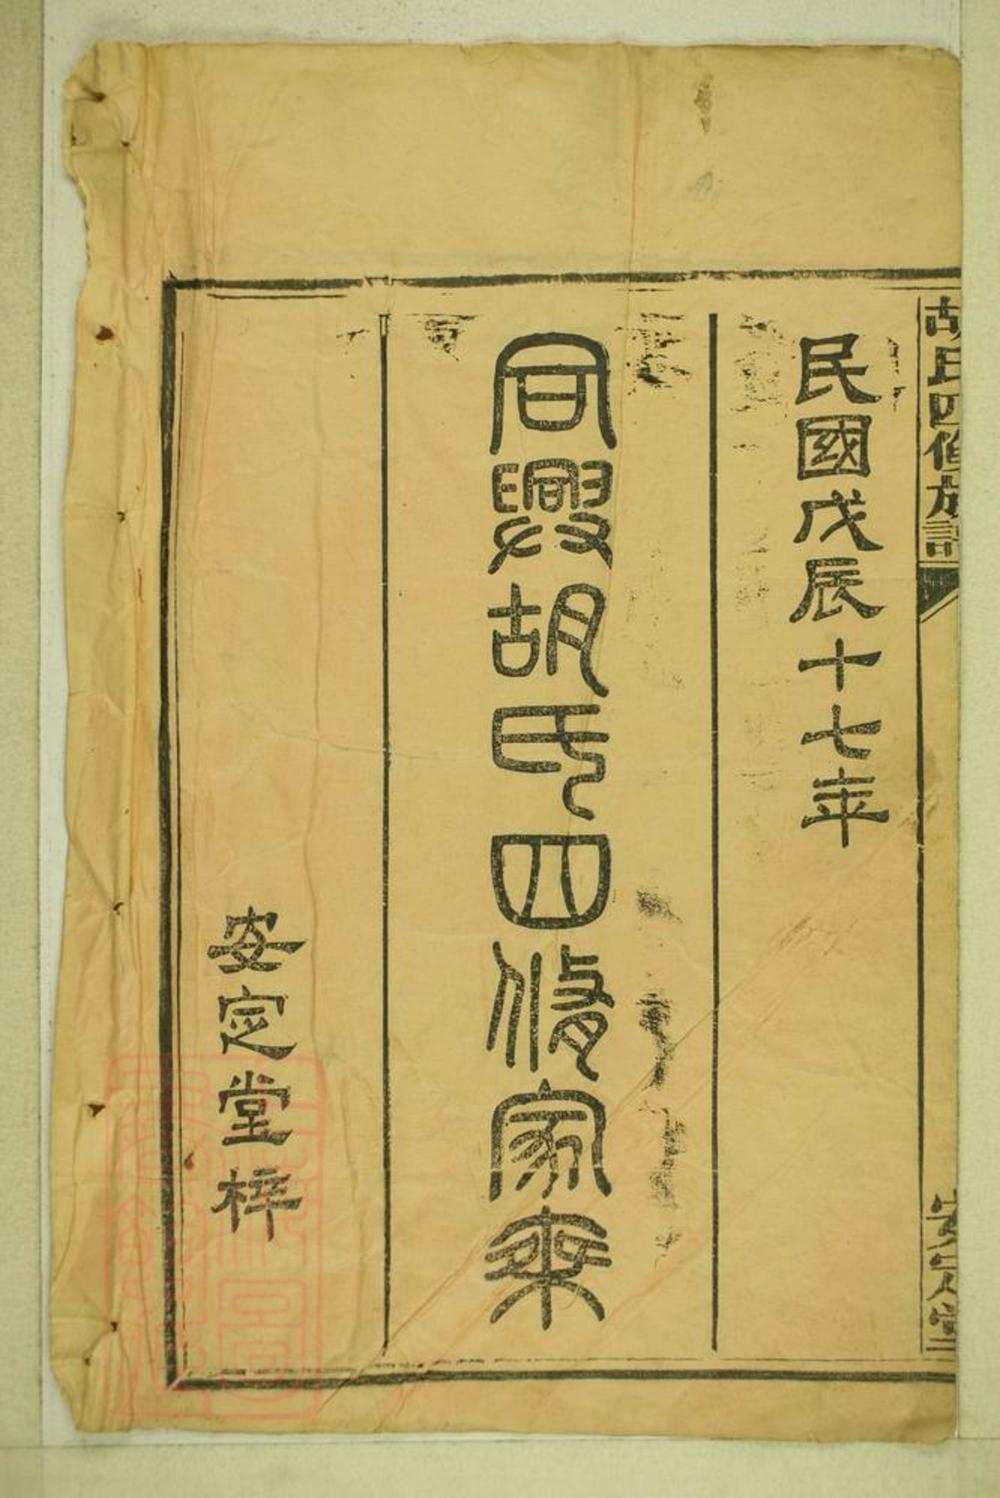 胡氏四修族譜
安定堂
民國戊辰十七年
同興胡氏四修家乘
安定堂梓